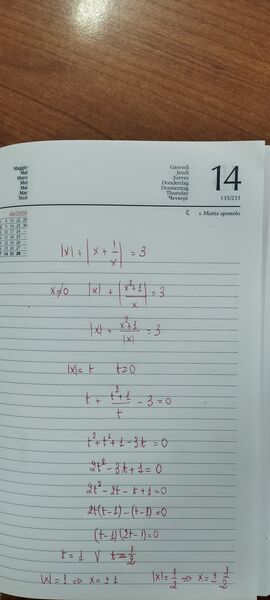 Maggio
Mai
Mayo
Mei
Mai
May
Май
Giovedì
Jeudi
Jueves
Donderdag
Donnerstag
Thursday
Четверг
14
135/231
06/2020
☾ s. Mattia apostolo
|x| + |x + 1/x| = 3
x≠0 |x| + |(x²+1)/x| = 3
|x| + (x²+1)/|x| = 3
|x| = t t≥0
t + (t²+1)/t - 3 = 0
t² + t² + 1 - 3t = 0
2t² - 3t + 1 = 0
2t² - 2t - t + 1 = 0
2t(t-1) - (t-1) = 0
(t-1)(2t-1) = 0
t = 1 V t = 1/2
|x| = 1 ⇒ x = ±1 |x| = 1/2 ⇒ x = ± 1/2